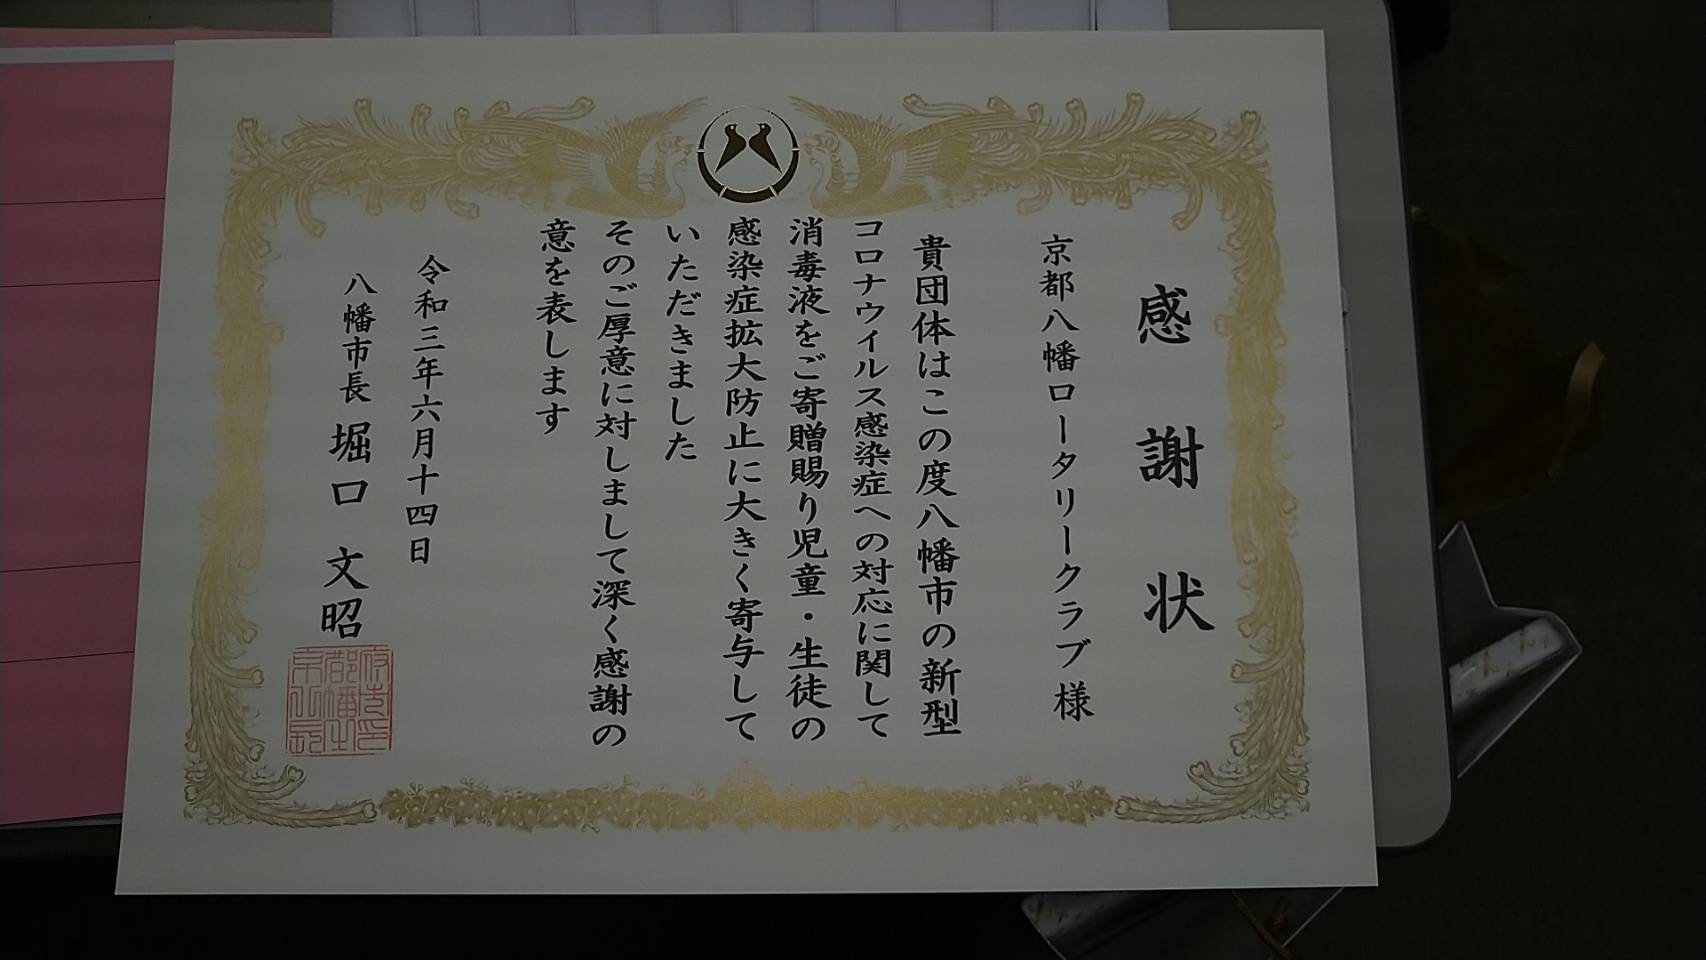 感謝状
京都八幡ロータリークラブ様
貴団体はこの度八幡市の新型
コロナウイルス感染症への対応に関して
消毒液をご寄贈賜り児童・生徒の
感染症拡大防止に大きく寄与して
いただきました
そのご厚意に対しまして深く感謝の
意を表します
令和三年六月十四日
八幡市長 堀口 文昭